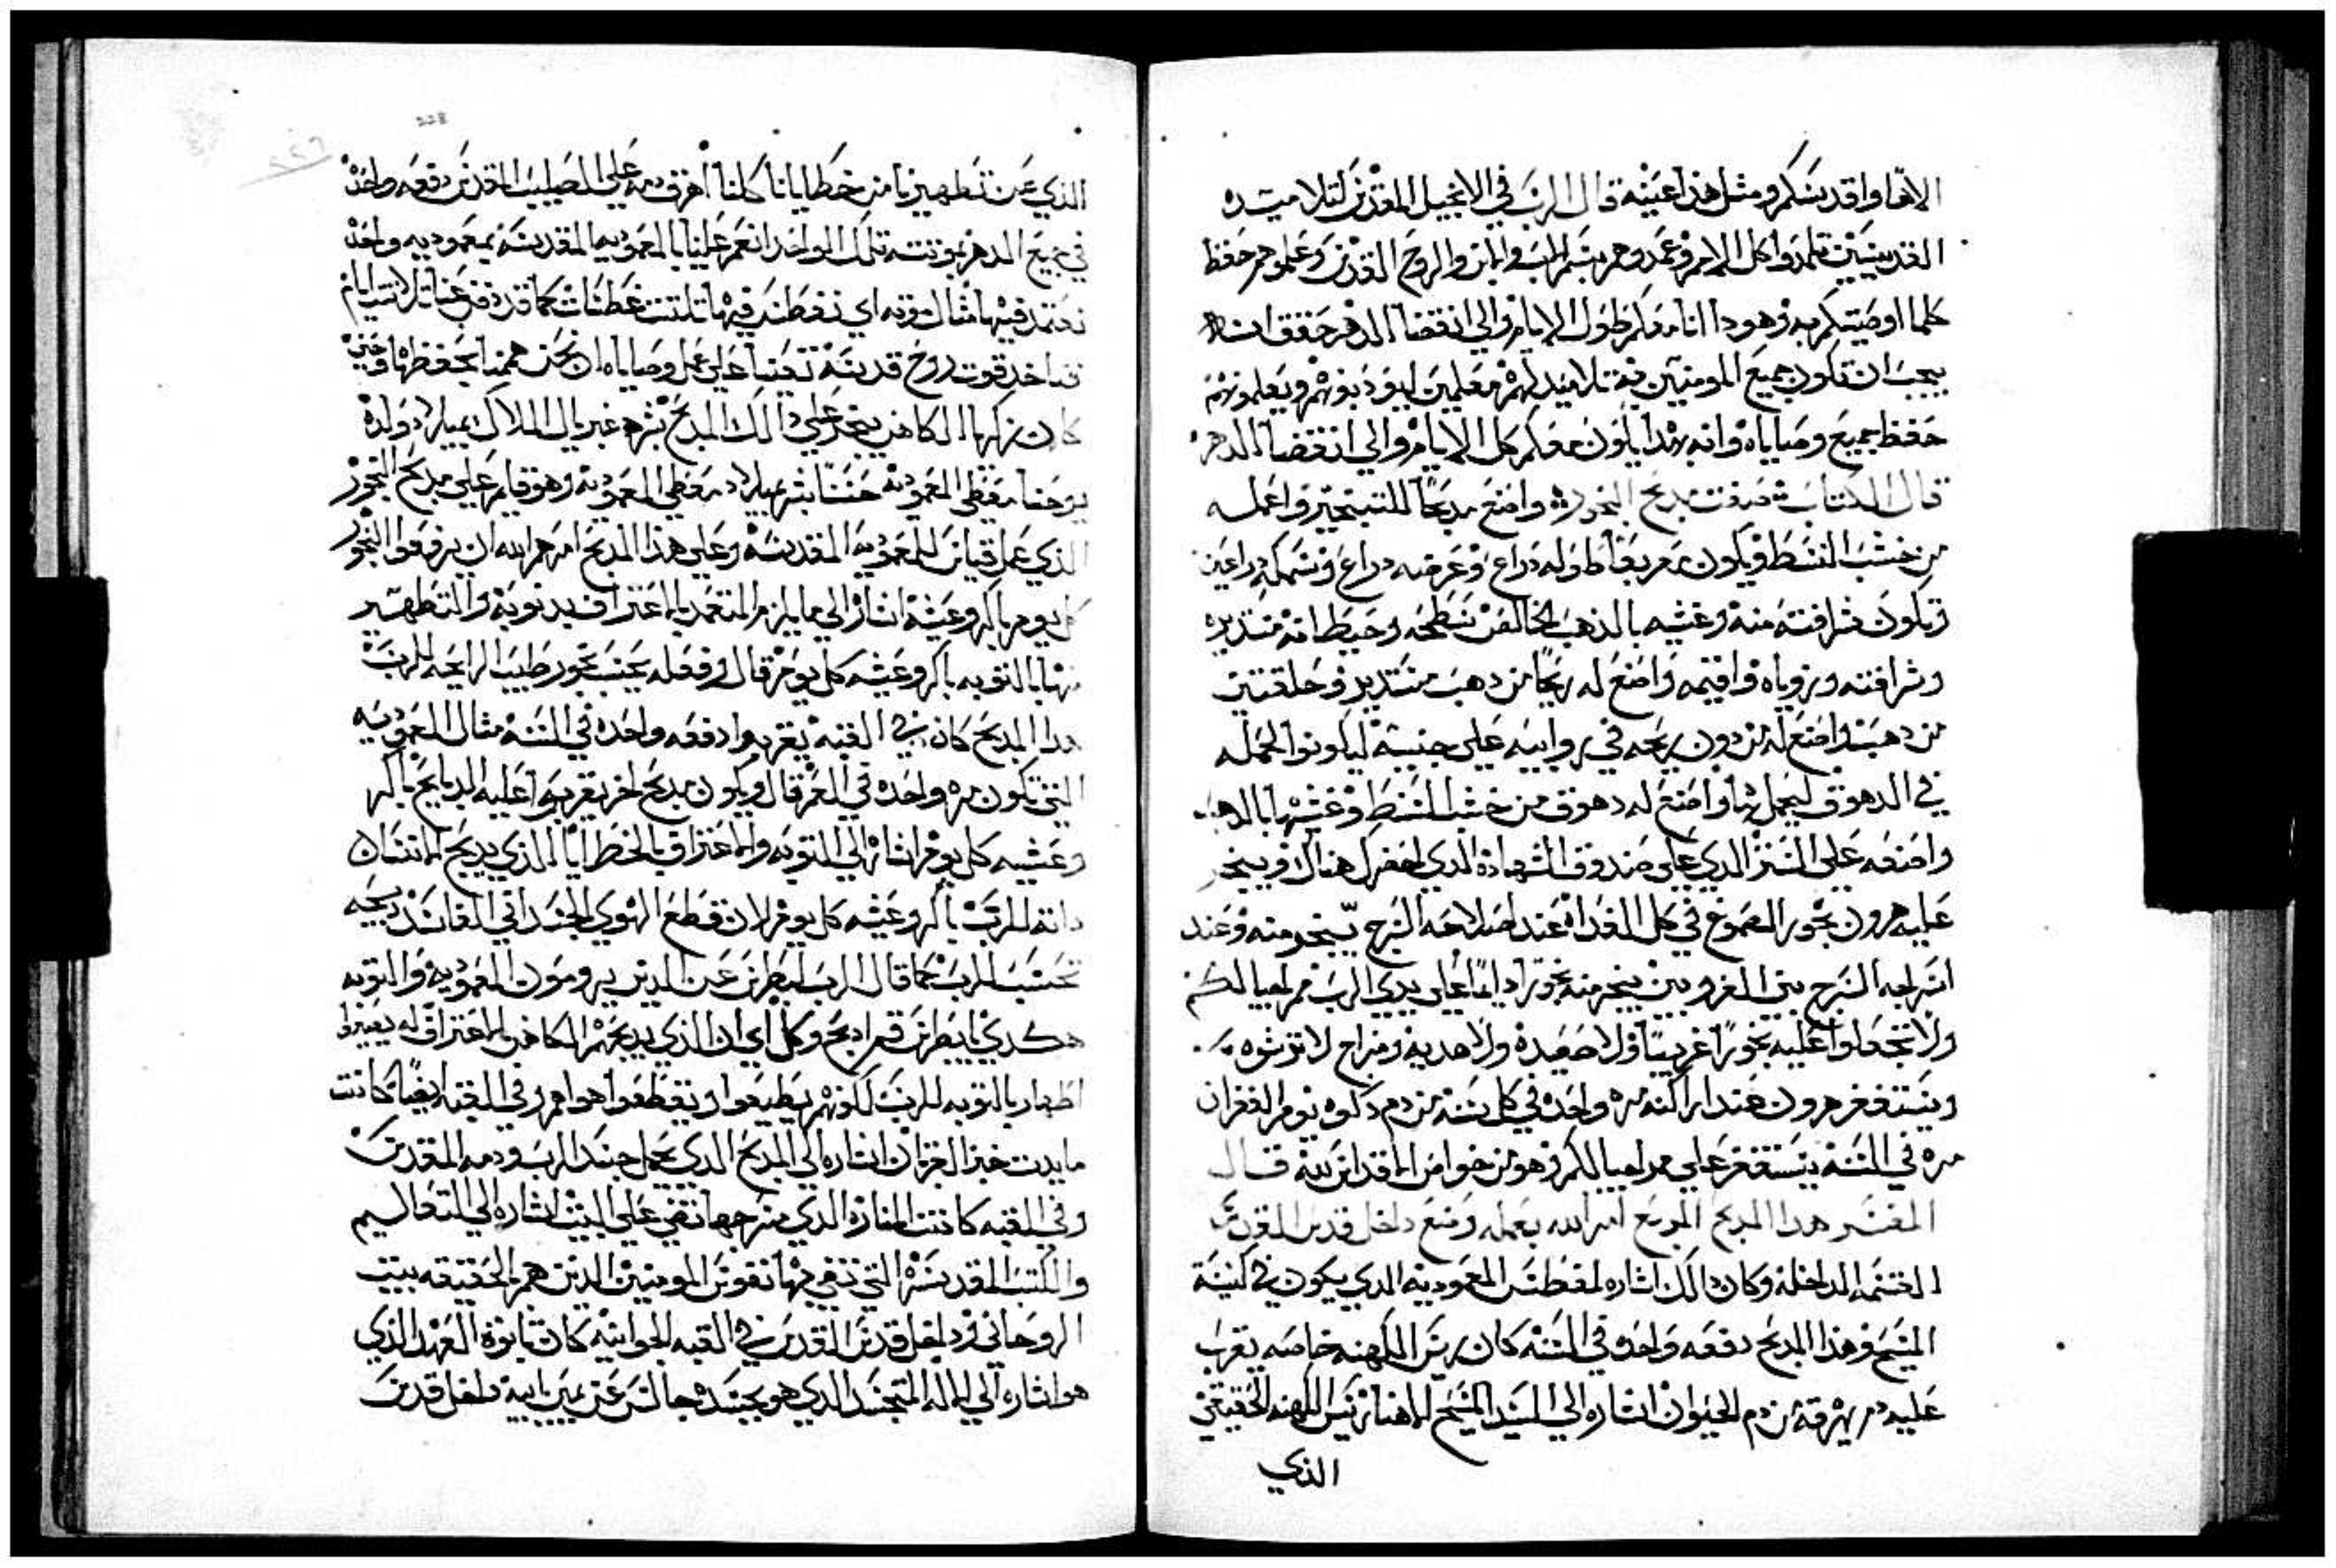 الاها واقدسكم ومثل هذا عينه قال الرب في الانجيل المقدس لتلاميده
القديسين تلمدوا كل الامم وعمدوهم بسم الاب والابن والروح القدس وعلموهم حفظ
كلما اوصيتكم به وهودا انا معكم طول الايام والي انقضا الدهر حقق انه
يجب ان تكون جميع المومنين به تلاميد لهم معلمين ليودبونهم ويعلمونهم
حفظ جميع وصاياه وانه بهدا يكون معكم كل الايام والي انقضا الدهر
قال الكتاب صفت مدبح البخور واصنع مدبحًا للتبخير واعمله
من خشب الشطو يكون مربعًا طوله دراع وعرضه دراع وسمكه دراعين
وتكون شرافته منه وغشيه بالدهب الخالص سطحه وحيطانه مستديره
وشرافته وزوياه واقيمه واصنع له زيجًا من دهب مستدير وحلقتين
من دهب واصنع له من دون زيجه في زوايه علي جنبيه ليكونوا لحمله
في الدهوق ليحمل بها واصنع له دهوق من خشب الشط وغشيها بالدهب
واصنعه علي الستر الدي علي صندوق الشهاده الدي اخضر لك هناك ويبخر
عليه هرون بخور الصموغ في كل الغداه عند اصلاحه السرج يبخر منه وعند
اسراجه السرج بين الغروبين يبخر منه بخورًا دايمًا علي يدي الرب في اجيالكم
ولا تجعلوا عليه بخورًا غريبًا ولا صعيده ولا هديه ومزاج لا ترشوه
ويستغفر هرون عند اراكنه مره واحده في كل سنه من دم دكوه يوم الغفران
مره في السنه يستغفر علي مر اجيالكم وهو من خواص الاقداس لله قال
المفسر هدا المدبح المربع امر الله بعمله وضع داخل قدس القدس
الخيمه الداخله وكان دالك اشاره لمغطس المعموديه الدي يكون في كنيسة
المسيح وهدا المدبح دفعه واحده في السنه كان ريس الكهنه خاصه يقرب
عليه دم يهرقه من دم الحيوان اشاره الي السيد المسيح الاهنا ريس الكهنه الحقيقي
الذي
228
٢٢٦
الذي عن تطهيرنا من خطايانا كلنا اهرق دمه علي الصليب المقدس دفعه واحده
في جميع الدهر بموتته تلك الواحده انعم علينا بالمعموديه المقدسة بمعموديه واحده
نعتمد فيها مثال موته اي نغطس فيها تلتت غطسات كما قد دفن عنا تلاتت ايام
فناخد قوت روح قدسه تعيننا علي عمل وصاياه ان نحن هممنا بحفظها وحين
كان زكريا الكاهن يبخر علي دالك المدبح بشره غبريال الملاك بميلاد ولده
يوحنا معطي المعموديه حسنًا بشر بميلاد معطي المعموديه وهو قايم علي مدبح البخور
الذي عمل قياس للمعموديه المقدسه وعلي هدا المدبح امرهم الله ان يرفعوا البخور
كل يوم باكر وعشيه اشاره الي ما يلزم المتعمد بالاعتراف بدنوبه والتطهير
منها بالتوبه باكر وعشيه كل يوم قال وفعله يحسب بخور طيب الرايحه للرب
هدا المدبح كان في القبه يقربوا دفعه واحده في السنه مثال المعموديه
التي تكون مره واحده في العمر قال ويكون مدبح اخر يقربوا عليه الدبايح باكر
وعشيه كل يوم اشاره الي التوبه والاعتراف بالخطايا الذي يدبح الانسان
داته للرب باكر وعشيه كل يوم لان قطع الهوي الجسداني الفاسد دبيحه
تحسب للرب كما قال الرب لبطرس عن الدين يرومون المعموديه والتوبه
هكدي يا بطرس قم ادبح وكل اي ان الذي يدبحهم الكاهن الاعتراف له يصيروا
اطهار بالتوبه للرب لكونهم يطيعوا ويقطعوا هواهم وفي القبه ايضًا كانت
مايدت خبز القربان اشاره الي المدبح الدي يحمل جسد الرب ودمه المقدس
وفي القبه كانت المناره الدي سرجها تضي علي البيت اشاره الي التعاليم
والكتب المقدسه التي تضي بها نفوس المومنين الدين هم بالحقيقه بيت
الروحاني وداخل قدس القدس في القبه الجوانيه كان تابوة العهد الذي
هو اشاره الي الاله المتجسد الدي هو بجسده جالس عن يمين ابيه داخل قدس